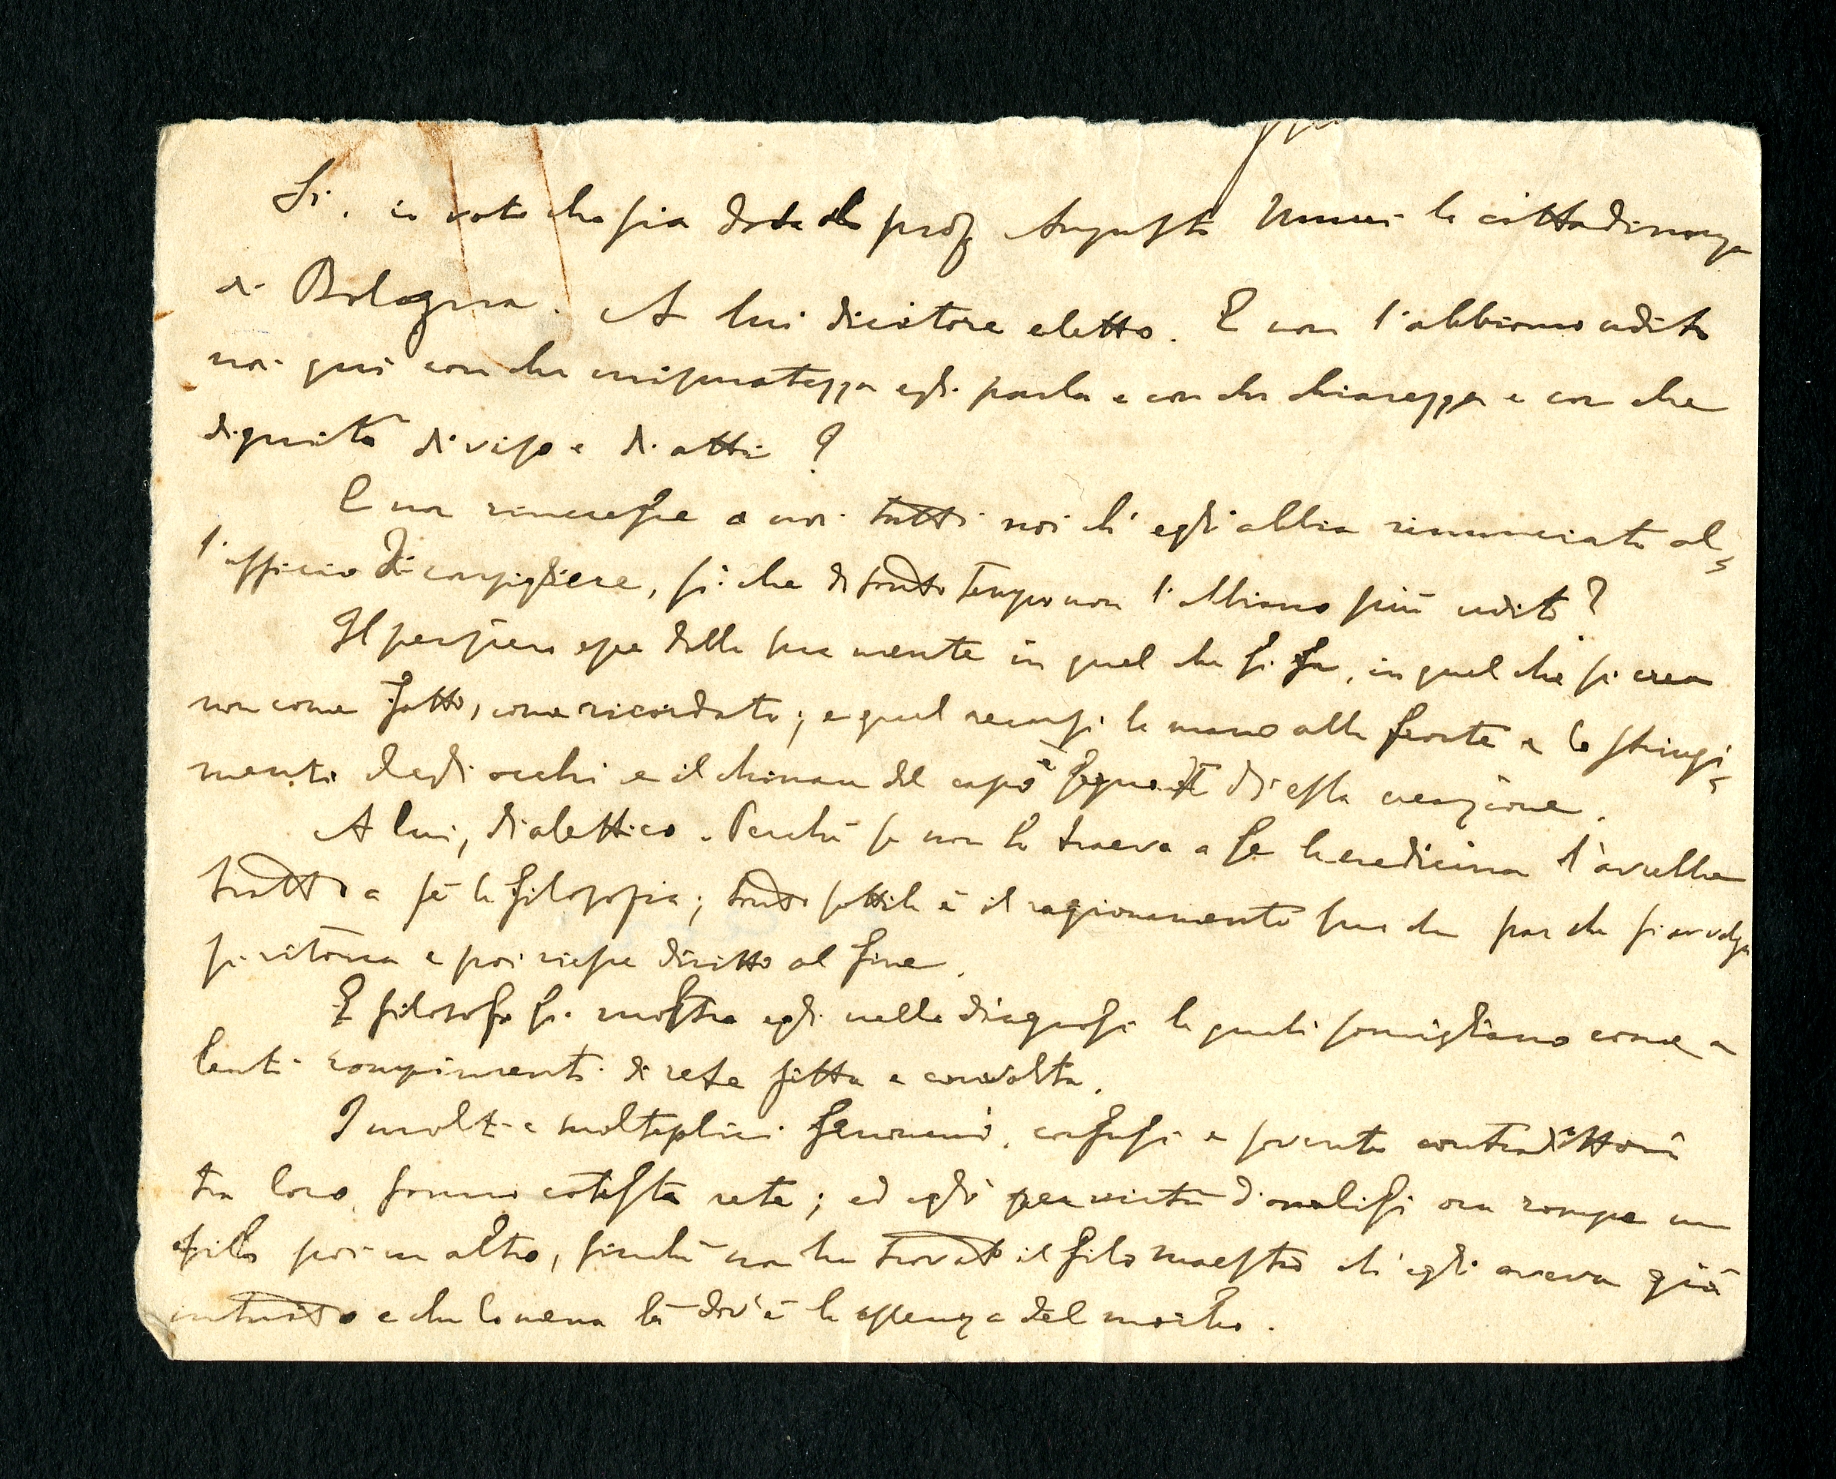 Sì. io voto che sia data al prof Augusto Murri la cittadinanza
di Bologna. A lui dicitore eletto. E non l'abbiamo udito
noi qui con che misuratezza egli parla e con che chiarezza e con che
dignità di viso e di atti?
E non rincresce a noi tutti noi ch'egli abbia rinunciato al-
l'ufficio di consigliere, sì che di tanto tempo non l'abbiamo più udito?
Il pensiero esce dalla sua mente in quel che si fa, in quel che si crea
non come fatto, come ricordato; e quel recarsi la mano alla fronte e lo stringi-
mento degli occhi e il chinare del capo è di essa creazione.
A lui, dialettico. Perchè se non lo traeva a se la medicina l'avrebbe
tratto a sè la filosofia; tanto sottile è il ragionamento suo che par che si avvolga
si ritorca e poi riesce diritto al fine.
E filosofo si mostra egli nelle diagnosi le quali somigliano come a
lenti rompimenti di rete fitta e convolta.
I molti e molteplici fenomeni, confusi e sovente contradittorii
tra loro, sono cotesta rete; ed egli per virtù d'analisi ora rompe un
filo poi un altro, finchè non ha trovato il filo maestro ch'egli aveva già
intuito e che lo mena là dov'è la essenza del morbo.